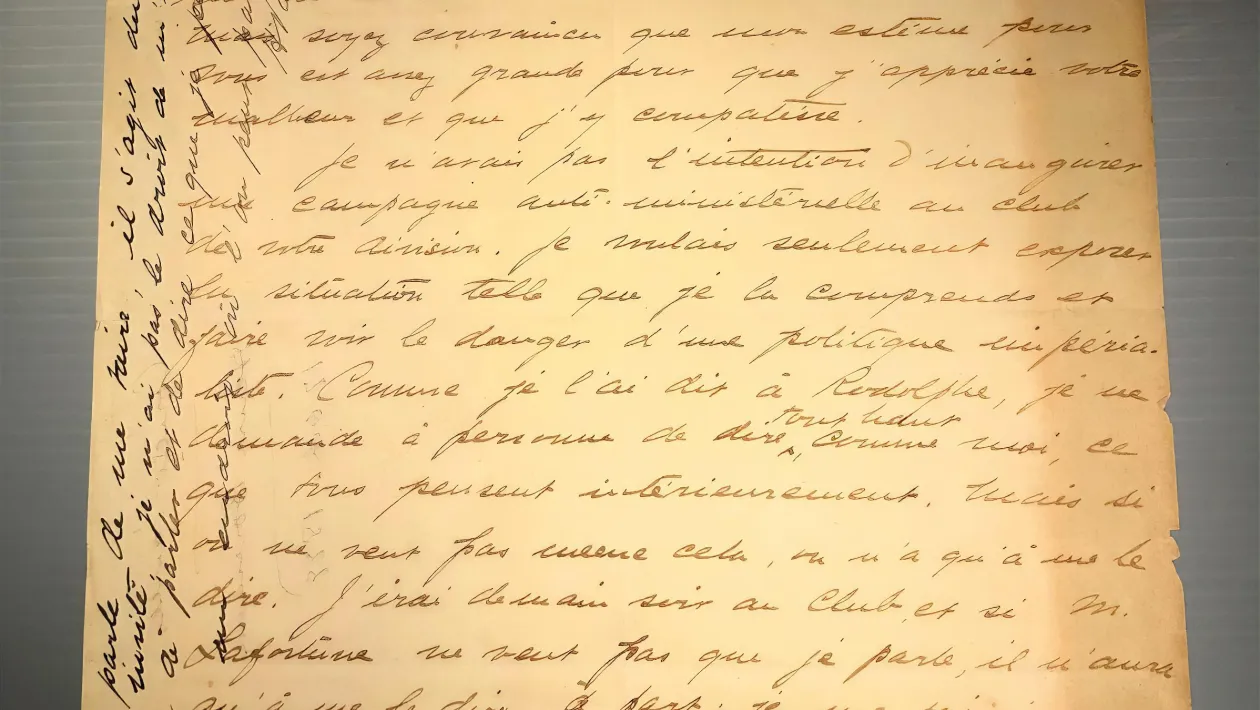 mais soyez convaincu que mon estime pour
vous est assez grande pour que j'apprécie votre
malheur et que j'y compatisse.
Je n'avais pas l'intention d'inaugurer
une campagne anti-ministérielle au club
de votre division. Je voulais seulement exposer
la situation telle que je la comprends et
faire voir le danger d'une politique impéria-
liste. Comme je l'ai dit à Rodolphe, je ne
demande à personne de dire tout haut, comme moi, ce
que tous pensent intérieurement. Mais si
on ne veut pas meme cela, on n'a qu'à me le
dire. J'irai demain soir au Club, et si M.
Lafortune ne veut pas que je parle, il n'aura
qu'à me le dire à part;
parle
invité de me taire, il s'agit du
je n'ai pas le droit de
de parler et de dire ce que je